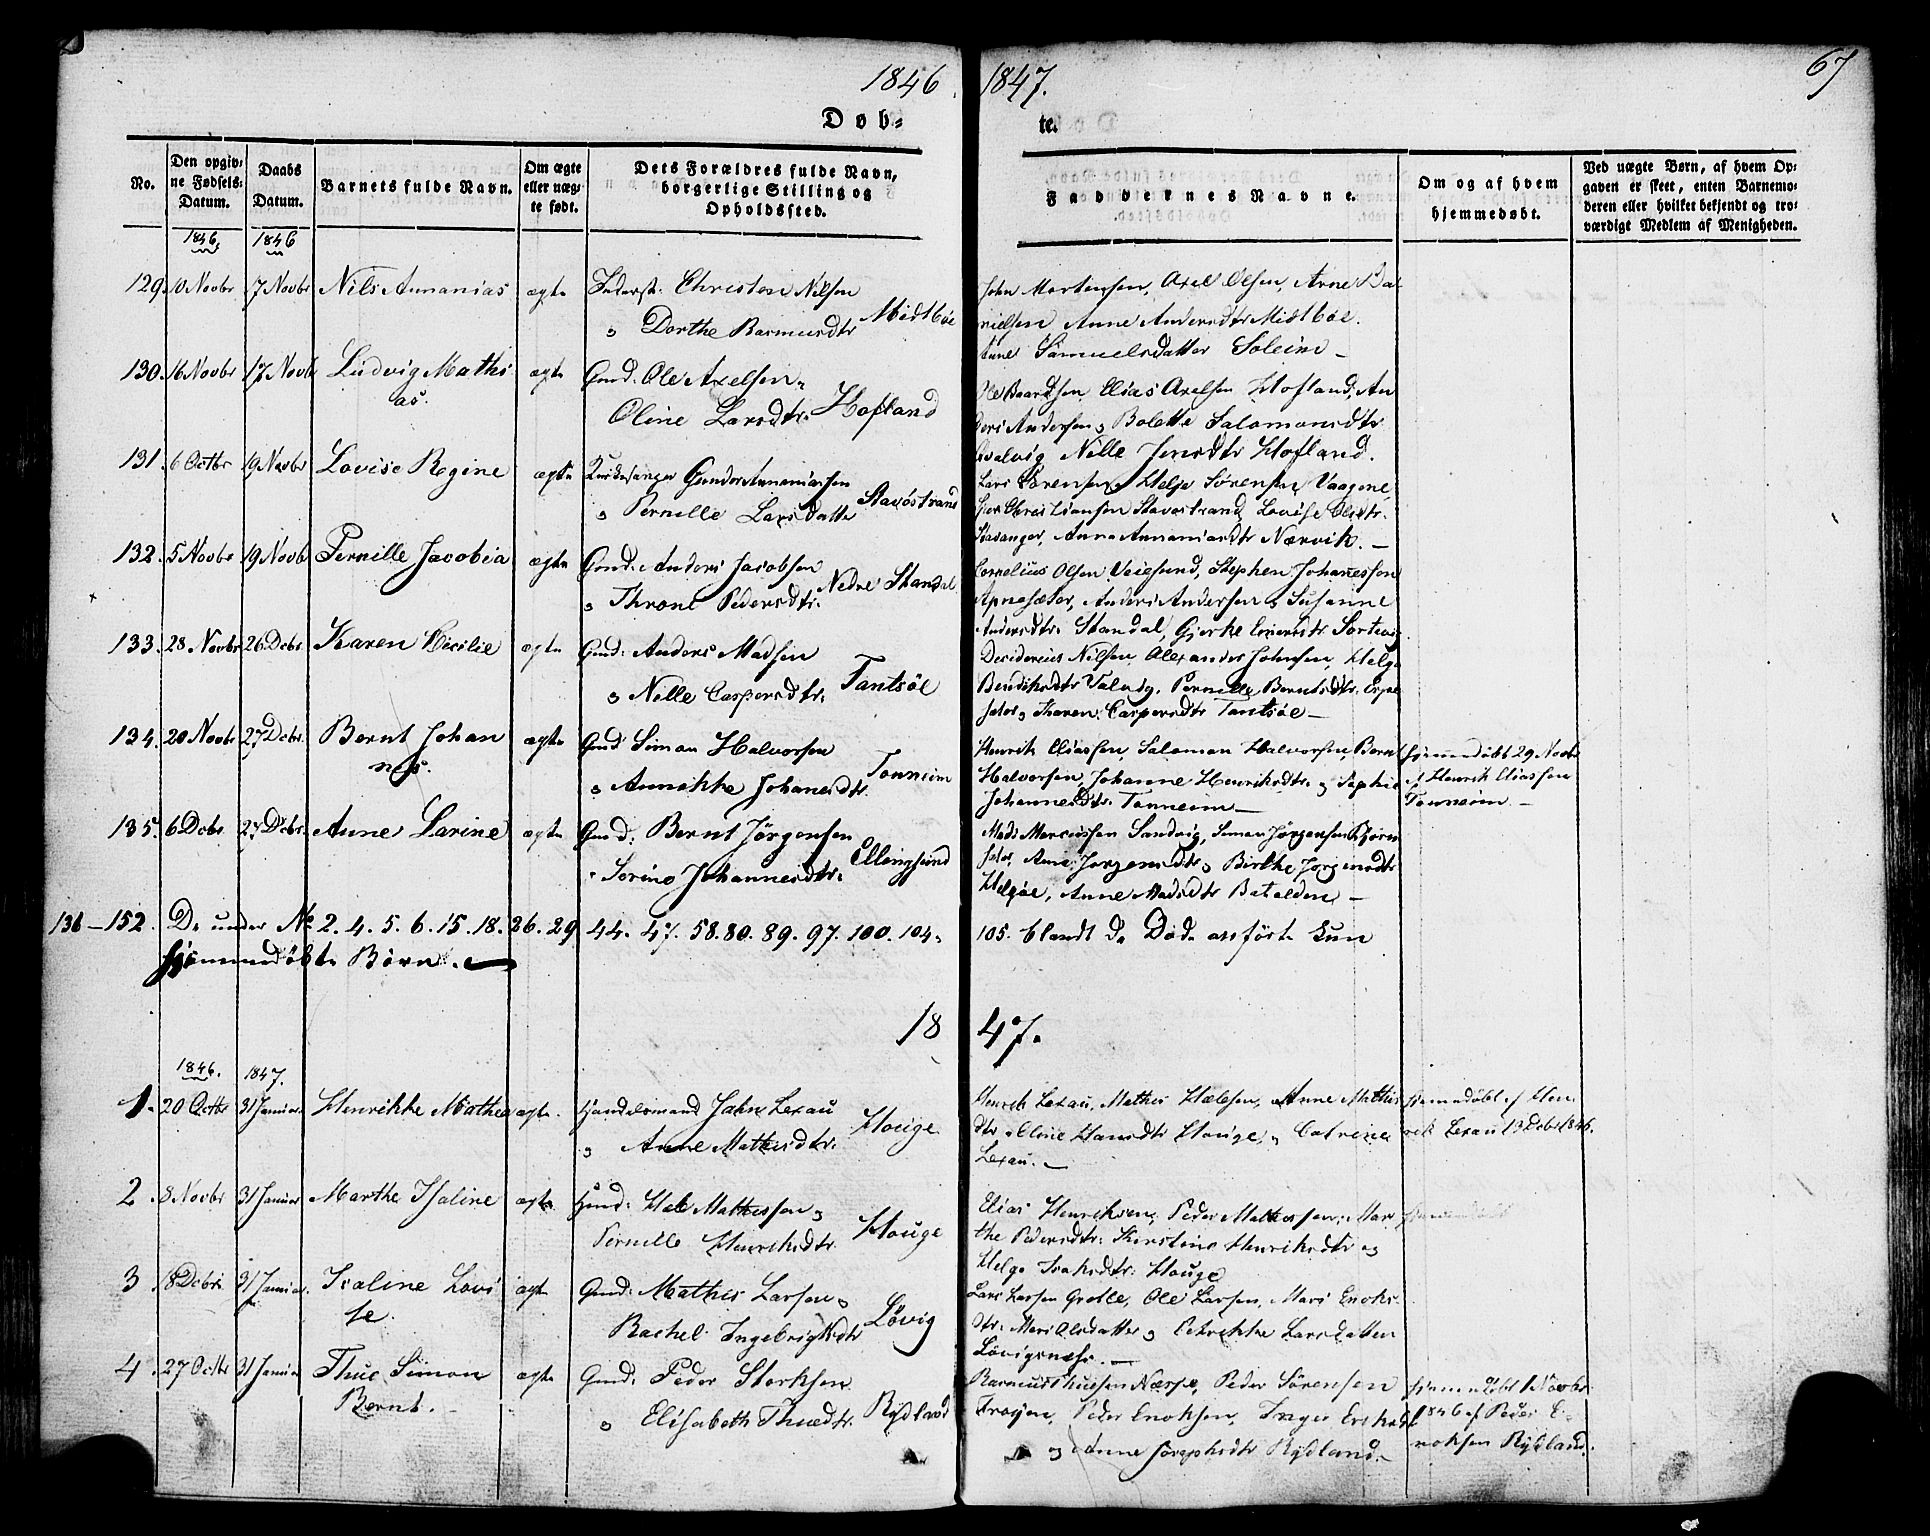 1846 1847. 67
Døb= te.
No.
Den opgiv=
ne Fødsels=
Datum.
Daabs
Datum.
Barnets fulde Navn.
Om ægte
eller uæg=
te født.
Dets Forældres fulde Navn,
borgerlige Stilling og
Opholdssted.
Faddernes Navne.
Om og af hvem
hjemmedøbt.
Ved uægte Børn, af hvem Op=
gaven er skeet, enten Barnemo=
deren eller hvilket bekjendt og tro=
værdigt Medlem af Menigheden.
1846. 1846
129. 10 Novbr 17 Novbr Nils Annanias ægte Christen Nilsen
" Dorthe Rasmusdtr Midtbøe
John Mortensen, Axel Olsen, Arne Da
nielsen Anne Andersdtr Midtbøe.
Anne Samuelsdatter Soleim —
130. 16 Novbr 17 Novb Ludvig Mathi
as. ægte Gmd: Ole Axelsen
Oline Larsdtr. Hofland
Ole Baardsen Elias Axelsen Hofland, An
ders Andersen, Bolette Salomonsdtr
Nille Jensdtr Hofland.
131. 6 Octbr 19 Novbr Lovise Regine ægte Kirkesanger Gunder Annaniassen
" Pernille Larsdatter Stavøstrand
Lars Sørensen, Helje Sørensen Vaagene,
Christiansen Stavøstrand, Lovise Olsdtr.
Stavanger, Anne Annaniasdtr Nærvik. —
132. 5 Novbr 19 Novb Pernille Jacobia ægte Gmd: Anders Jacobsen
" Throne Pedersdtr. Nedre Standal
Cornelius Olsen Veiesund, Stephen Johanessen
Apnesæter, Anders Andersen, Susanne
Andersdtr. Standal, Gjerke
133. 28 Novbr 26 Debr. Karen Cecilie ægte Gmd: Anders Madsen
" Nille Caspersdtr. Tantsøe
Desiderius Nilsen, Alexander Johnsen, Helge
Bendiksdtr Valvig, Pernille Berntsdtr.
Karen Caspersdtr Tantsøe —
134. 20 Novbr 27 Debr. Bernt Johan
nes. ægte Gmd Simon Halvorsen
" Annikke Johanesdtr. Tonneim
Henrik Eliassen, Salomon Halvorsen, Bernt
Halvorsen, Johanne Henriksdtr. og Sophie
Johannesdtr. Tonneim —
hjemmedøbt 29 Novbr
af Henrik Eliassen
Tonneim —
135. 6 Debr 27 Debr. Anne Larine ægte Gmd: Bernt Jørgensen
" Serine Johannesdtr. Ellingsund
Mads Marcussen Sandvig, Simon Jørgensen Bjørn
seter, Ane Jørgensdtr, Birthe Jørgensdtr
Helgøe, Anne Madsdtr Batalden —
136 — 152. De under No 2. 4. 5. 6. 15. 18. 26. 29 44. 47. 58. 80. 89. 97. 100. 104. 105. blandt de Døde anførte kun
hjemmedøbte Børn. —
18 47.
1846. 1847.
1. 20 Octbr 31 Januar Henrikke Mathea ægte. Handelsmand Jahn Lexau
" Anne Mathisdtr. Houge
Henrik Lexau, Mathis Helesen, Anne Mathis
dtr, Oline Hansdtr Houge, Catrine
Lexau. —
hjemmedøbt af Hen
rik Lexau 13 Debr 1846.
2. 8 Novbr 31 Januar Marthe Isaline ægte Gmd: Hele Mathissen
Pernille Henriksdtr Houge
Elias Henriksen, Peder Mathissen, Mar
the Pedersdtr. Kirstine Henriksdtr og
Helge Isaksdtr. Houge
hjemmedøbt
3. 8 Debr. 31 Januar. Isaline Lovi
se. ægte Gmd: Mathis Larsen
Rachel Ingebrigtsdtr Løvig
Lars Larsen Grotle, Ole Larsen, Mari Enoks
dtr. Mari Olsdatter, Petrikke Larsdatter
Løvignæss. —
4. 27 Octbr 31 Januar Thue Simon
Bernt. ægte Gmd: Peder Storksen
" Elisabeth Thuedtr. Rydland
Rasmus Thuesen Næsse, Peder Sørensen
Frøyen, Peder Enoksen, Inger
og Anne Josephsdtr Rydland. —
hjemmedøbt 1 Novbr
1846 af Peder E=
noksen Rydland.